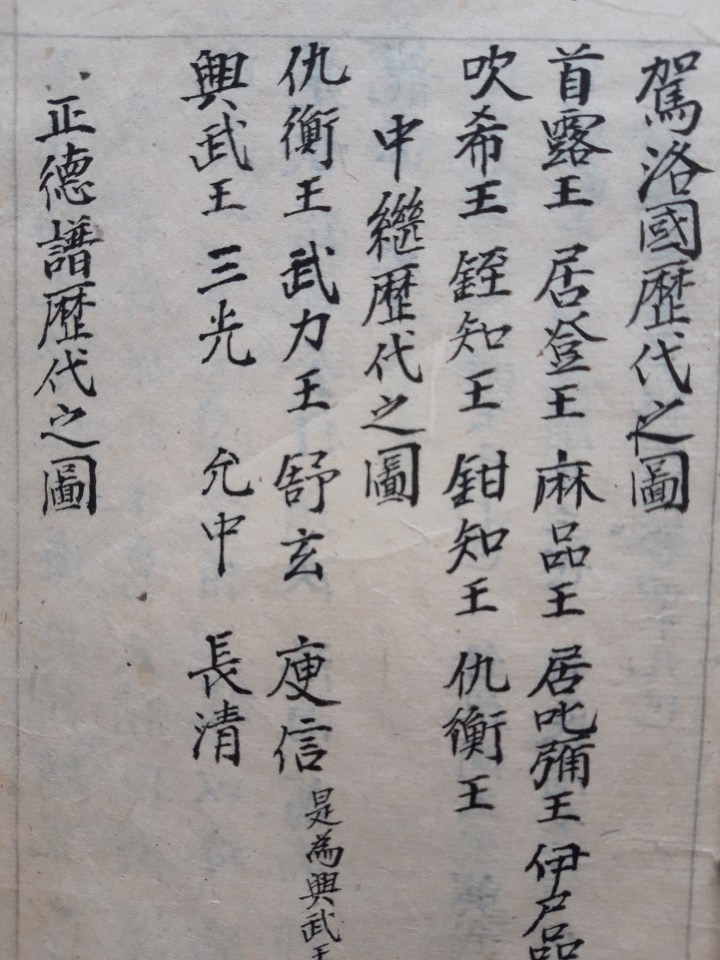 駕洛國歷代之圖
首露王 居登王 麻品王 居叱彌王 伊尸品
吹希王 銍知王 鉗知王 仇衡王
中繼歷代之圖
仇衡王 武力王 舒玄 庾信 是為興武王
興武王 三光 允中 長清
正德譜歷代之圖